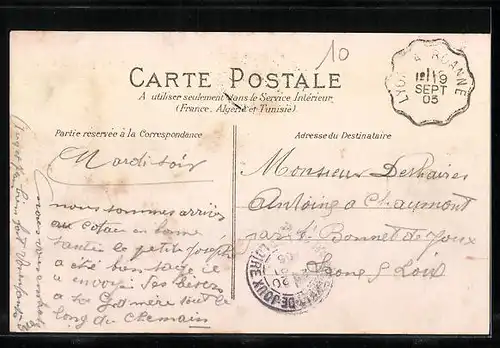 10
CARTE POSTALE
A utiliser seulement dans le Service Intérieur
(France, Algérie et Tunisie)
Partie réservée à la Correspondance
Adresse du Destinataire
LYON A ROANNE
19
SEPT
05
Mardi soir
nous sommes arrivés
au coteau en bonne
santé le petit Joseph
a été bien sage il
a envoyé des baisers
a sa Gd mère tout le
long du chemain
Monsieur Deshaires
Antoine a Chaumont
par St Bonnet de Joux
Saone & Loire
DE-JOUX
LOIRE